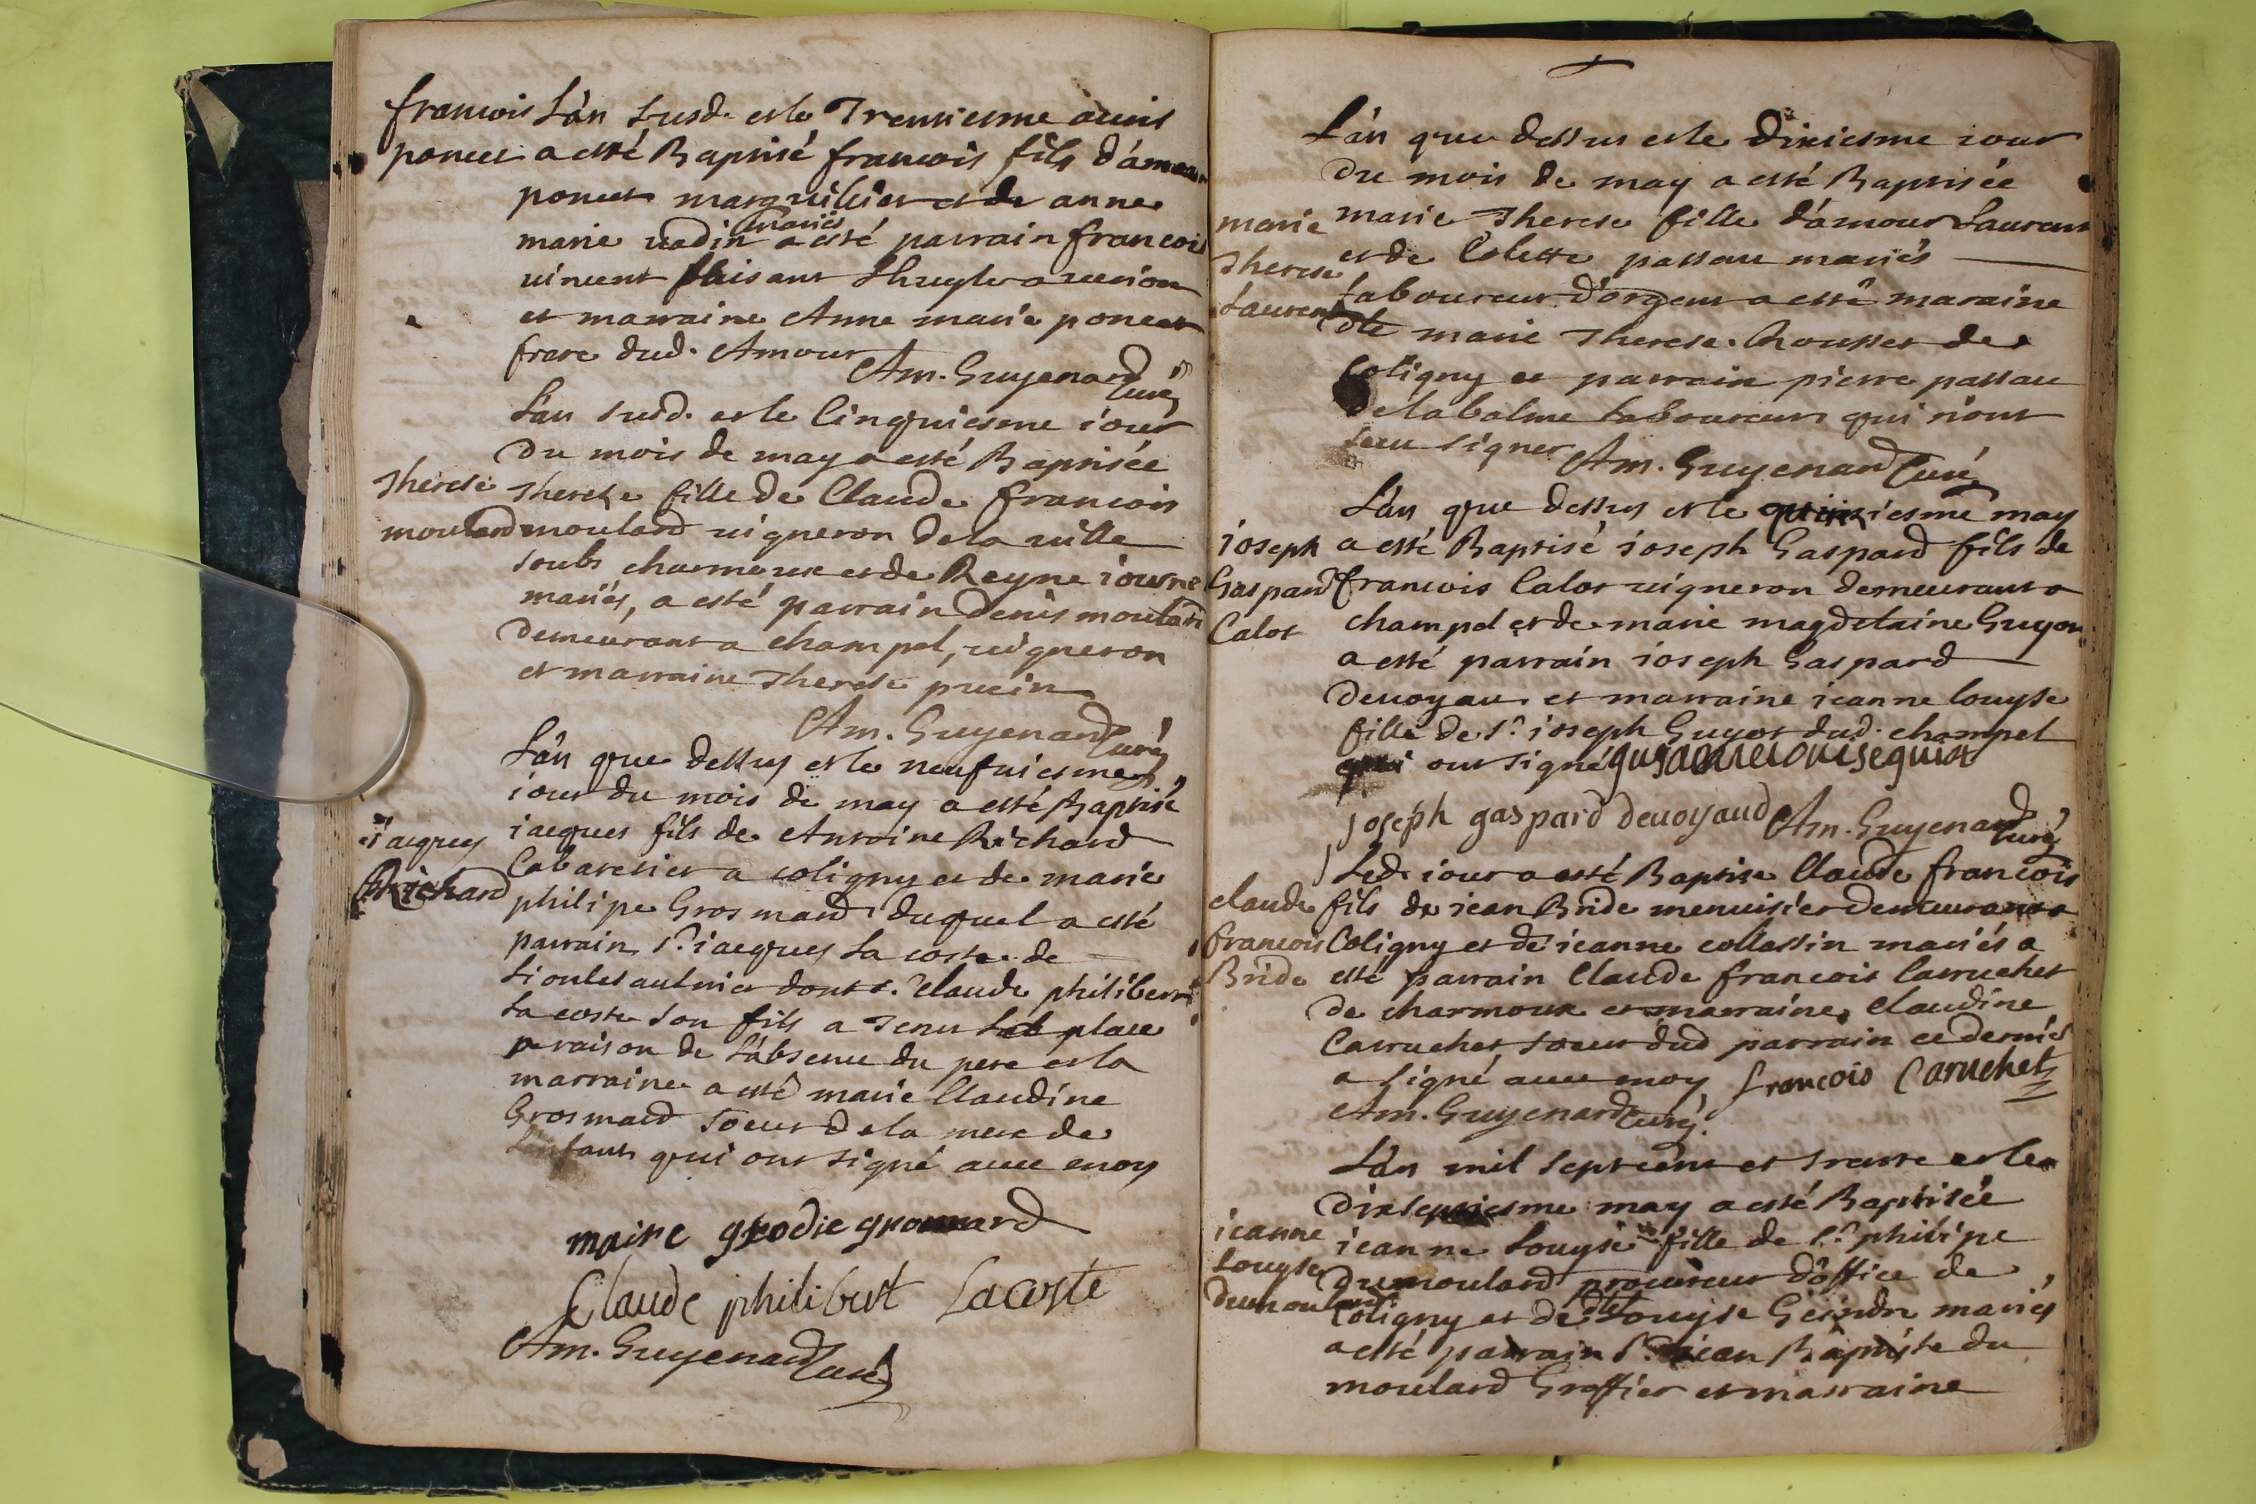 francois L'an susd. et le Trentiesme avril
poncet a esté Baptisé francois fils d'amour
poncet marguilier et de anne
mariés
marie vadin a esté parrain francois
vincent faisant
et marraine Anne marie poncet
frere dud. Amour
Am. Guyenard Curé
L'an susd. et le Cinquiesme iour
Du mois de may a esté Baptisée
Therese Therese fille de Claude francois
moulard moulard vigneron de la ville
soubs charmoux et de Reyne iourne
mariés, a esté parrain Denis moulard
Demeurant a champel, vigneron
et marraine Therese
Am. Guyenard Curé
L'an que dessus et le neufviesme
iour du mois de may a esté Baptisé
iacques iacques fils de Antoine Richard
Richard Cabaretier a coligny et de marie
philipe Grosmard duquel a esté
parrain Sr. iacques La coste de
Claude philibert
La coste son fils a tenu la place
a raison de l'absence du pere et la
marraine a esté marie Claudine
Grosmard soeur de la mere de
L'enfant qui ont signé avec moy
maire
Claude philibert Lacoste
Am. Guyenard Curé
L'an que dessus et le Dixiesme iour
Du mois de may a esté Baptisée
marie marie Therese fille d'amour Laurent
Therese et de Colette passau mariés
Laurent Laboureur d'orgeut a esté maraine
dlle marie Therese Rousset de
Coligny et parrain pierre passau
de la balme Laboureur qui n'ont
sceu signer Am. Guyenard Curé
L'an que dessus et le quinziesme may
ioseph a esté Baptisé ioseph Gaspard fils de
Gaspard francois Calot vigneron demeurant a
Calot champel et de marie magdelaine Guyon
a esté parrain ioseph Gaspard
Devoyau et marraine ieanne louyse
fille de Sr. ioseph Guyot dud. champel
qui ont signé
joseph gaspard devoyaud Am. Guyenard Curé
Led. iour a esté Baptisé Claude francois
claude fils de iean Bride menuisier demeurant a
francois Coligny et de ieanne collassin mariés a
Bride esté parrain Claude francois Carruchet
de charmoux et marraine Claudine
Carruchet soeur dud parrain ce dernié
a signé avec moy francois Caruchet
Am. Guyenard Curé
L'an mil sept cent et trante et le
Dixseptiesme may a esté Baptisée
ieanne ieanne Louyse fille de Sr. philipe
Louyse Dumoulard procureur d'office de
Dumoulard Coligny et de dlle Louyse Geindre mariés
a esté parrain Sr. iean Baptiste du
moulard Greffier et marraine